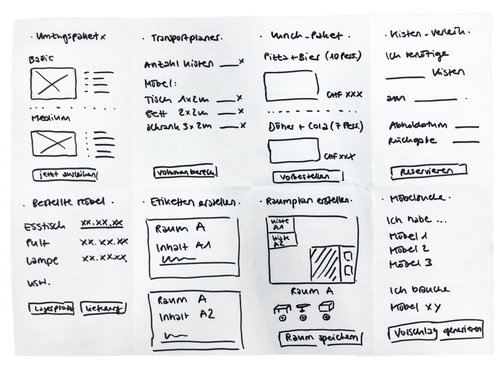 · Umzugspaketx
Basic
Medium
jetzt ausleihen
· Transportplaner.
Anzahl Kisten ___x
Möbel:
Tisch 1x2m ___x
Bett 2x2m ___x
Schrank 3x2m ___x
Volumenberech
· Lunch-Paket
Pitta + Bier (10 Pers.)
CHF XXX
Döner + Cola (7 Pers.)
CHF XXX
Vorbestellen
· Kisten-Verleih.
Ich benötige
____ Kisten
am ____.
Abholdatum ___
Rückgabe ___
Reservieren
· Bestellte Möbel.
Esstisch xx.xx.xx
Pult xx.xx.xx
Lampe xx.xx.xx
usw.
Lagerplatz Lieferung
· Etiketten erstellen.
Raum A
Inhalt A1
Raum A
Inhalt A2
· Raumplan erstellen.
Kiste
A1
Kiste
A2
Raum A
Raum speichern
· Möbelsuche.
Ich habe ...
Möbel 1
Möbel 2
Möbel 3
Ich brauche
Möbel xy
Vorschlag generieren